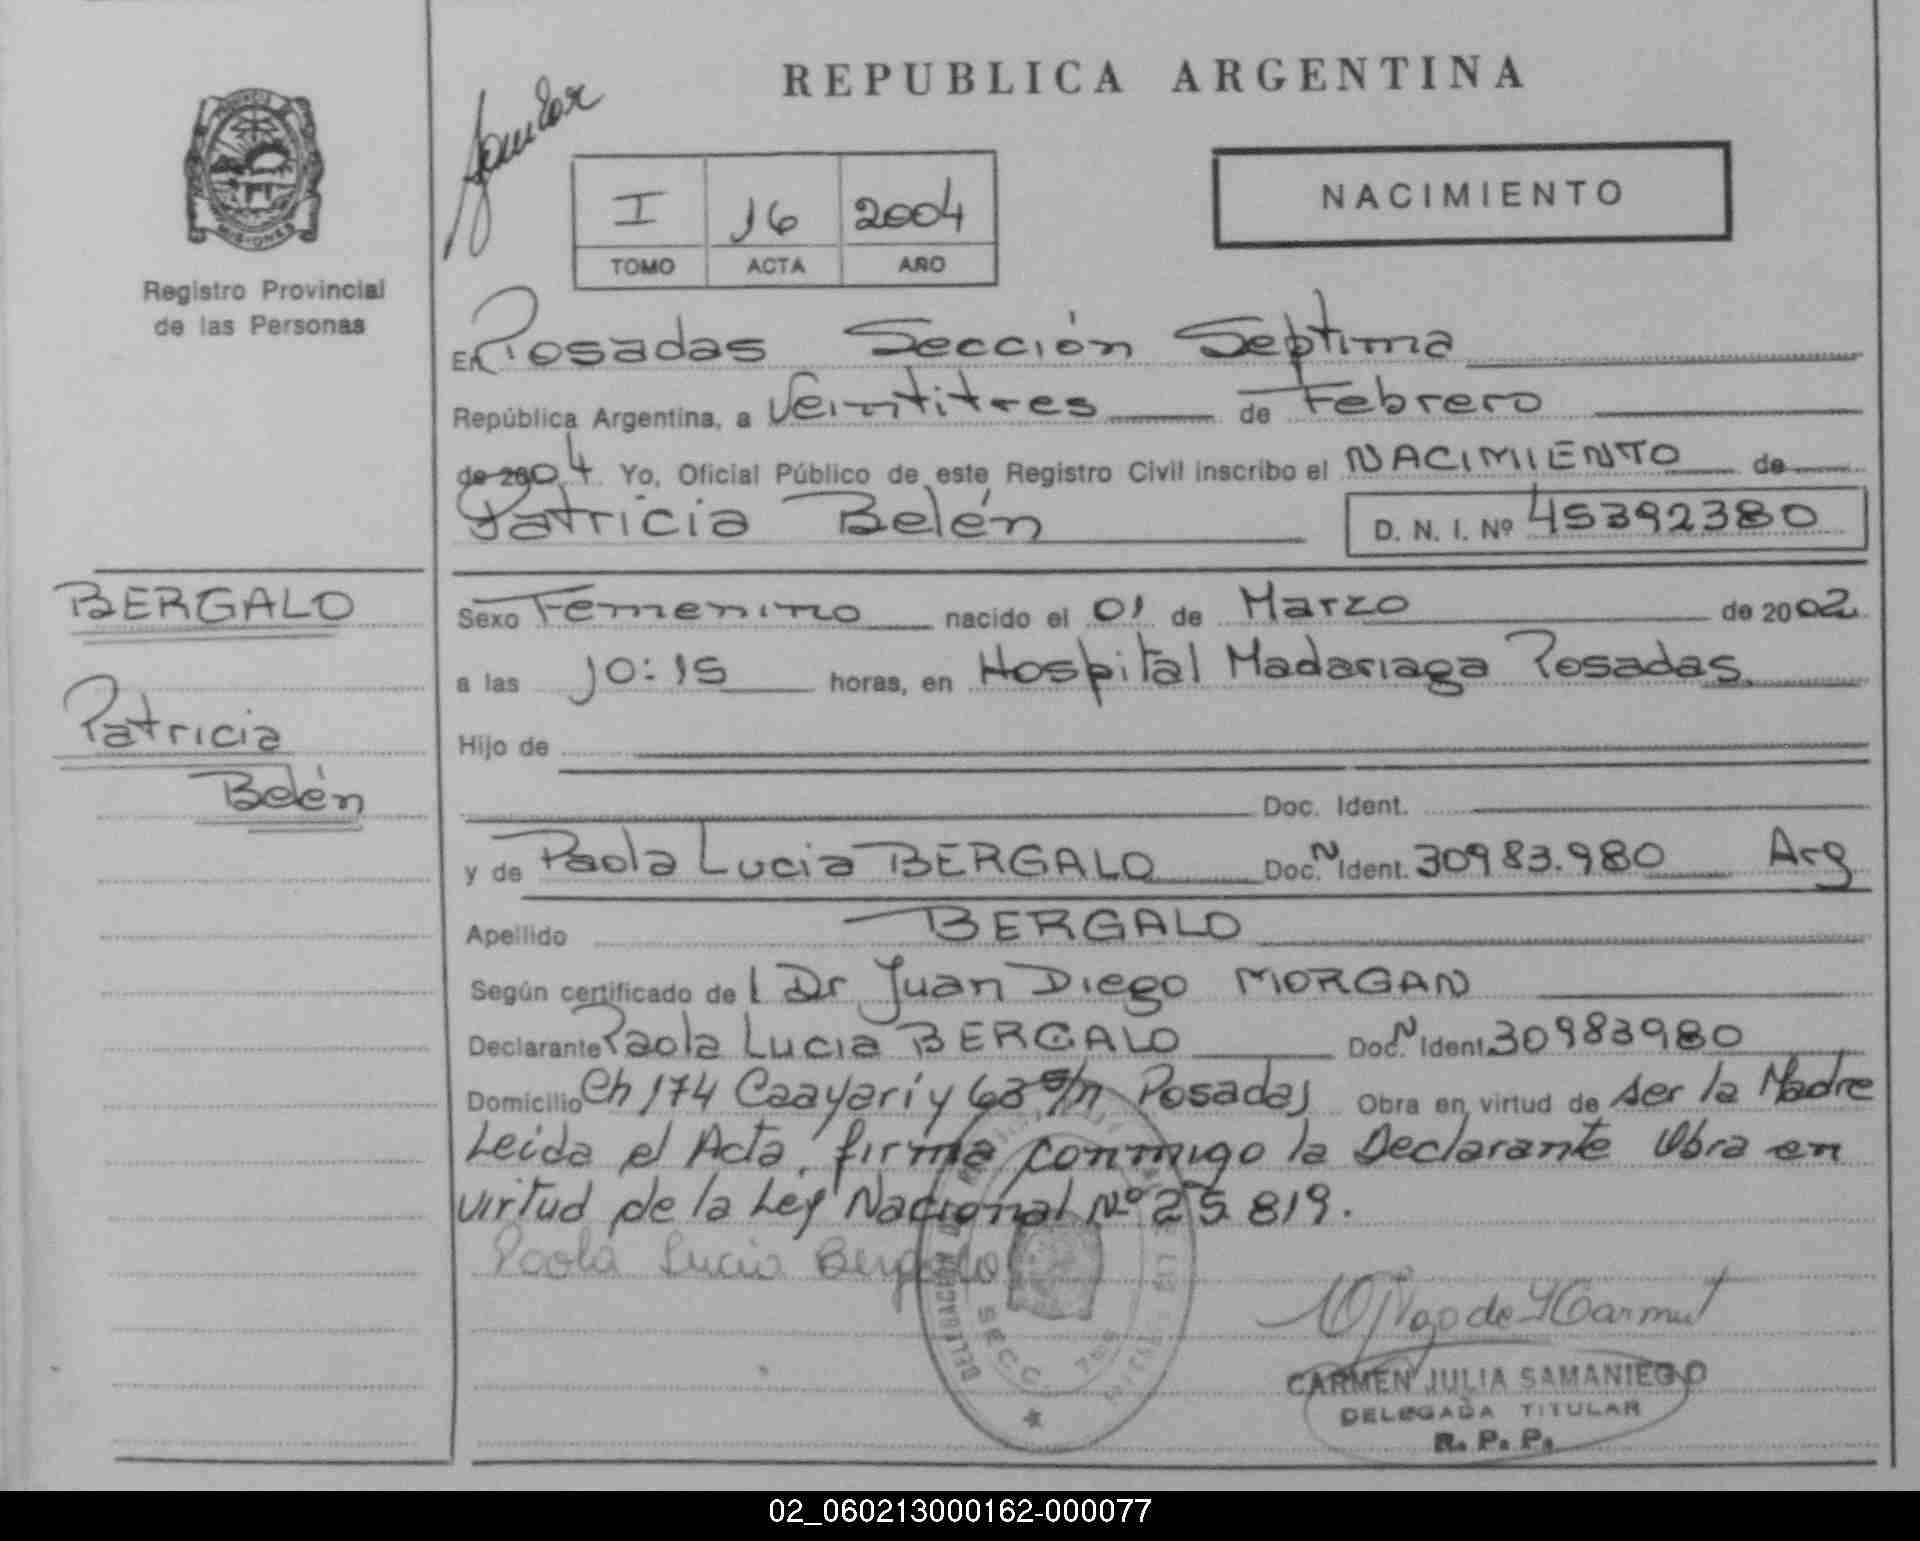 REPUBLICA ARGENTINA
MISIONES
Registro Provincial
de las Personas
I 16 2004
TOMO ACTA AÑO
NACIMIENTO
En Posadas Sección Septima
República Argentina, a Veintitres de Febrero
de 2004 Yo, Oficial Público de este Registro Civil inscribo el NACIMIENTO de
Patricia Belén D. N. I. Nº 45392380
BERGALO
Patricia
Belén
Sexo Femenino nacido el 01 de Marzo de 2002
a las 10:15 horas, en Hospital Madariaga Posadas.
Hijo de
Doc. Ident.
y de Paola Lucia BERGALO Doc. N Ident. 30983.980 Arg
Apellido BERGALO
Según certificado de l Dr Juan Diego MORGAN
Declarante Paola Lucia BERGALO Doc. N Ident. 30983980
Domicilio Ch 174 Caayari y 63 s/n Posadas Obra en virtud de ser la Madre
Leida el Acta, firma conmigo la Declarante Obra en
virtud de la Ley Nacional Nº 25 819.
Paola Lucia Bergalo
SECC.
CARMEN JULIA SAMANIEGO
DELEGADA TITULAR
R. P. P.
02_060213000162-000077